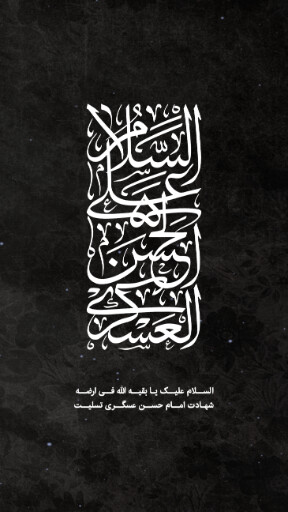 السلام
علی
الحسن
العسکری
السلام علیک یا بقیه الله فی ارضه
شهادت امام حسن عسگری تسلیت